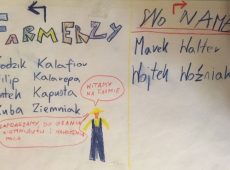 FARMERZY
odzik Kalafior
ilip Kalarepa
ntek Kapusta
uba Ziemniak
WITAMY
NA FARMIE
ZAPRASZAMY DO
NO NAME
Marek Walter
Wojtek Woźniak